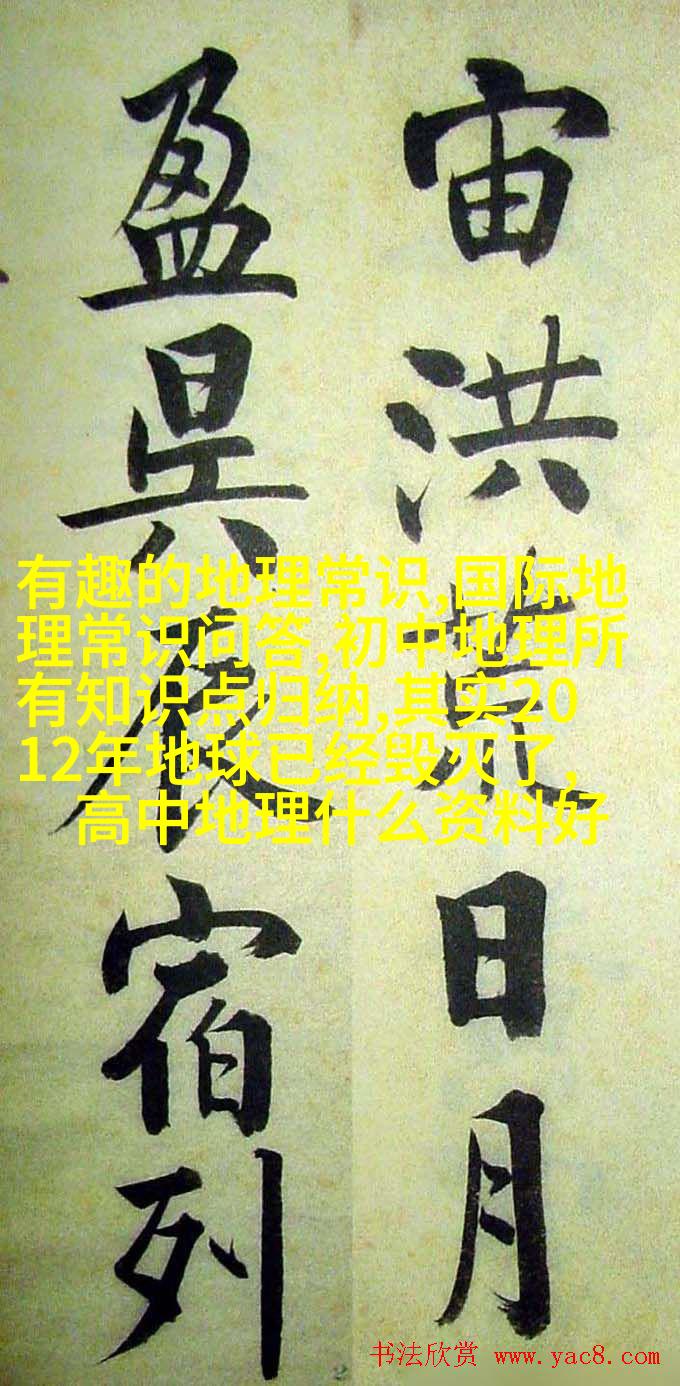 宙洪荒日月
盈昃辰宿列
有趣的地理常识,国际地
理常识问答,初中地理所
有知识点归纳,其实20
12年地球已经毁灭了,
高中地理什么资料好
书法欣赏 www.yac8.com